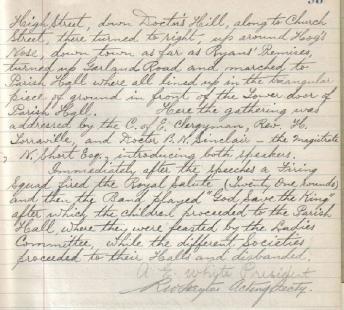 High Street, down Doctor's Hill, along to Church
Street, there turned to right, up around Hog's
Nose, down town as far as Ryans' Premises,
turned up Garland Road and marched to
Parish Hall where all lined up in the triangular
piece of ground in front of the Tower door of
Parish Hall. Here the gathering was
addressed by the C. of E. Clergyman, Rev. H.
Torraville, and Doctor R. N. Sinclair - the Magistrate
N. Short Esq., introducing both speakers.
Immediately after the speeches a Firing
Squad fired the Royal Salute (Twenty One rounds)
and then the Band played "God Save the King"
after which the children proceeded to the Parish
Hall where they were feasted by the Ladies
Committee, while the different Societies
proceeded to their Halls and disbanded.
A. E. Whyte President
Acting Secty.